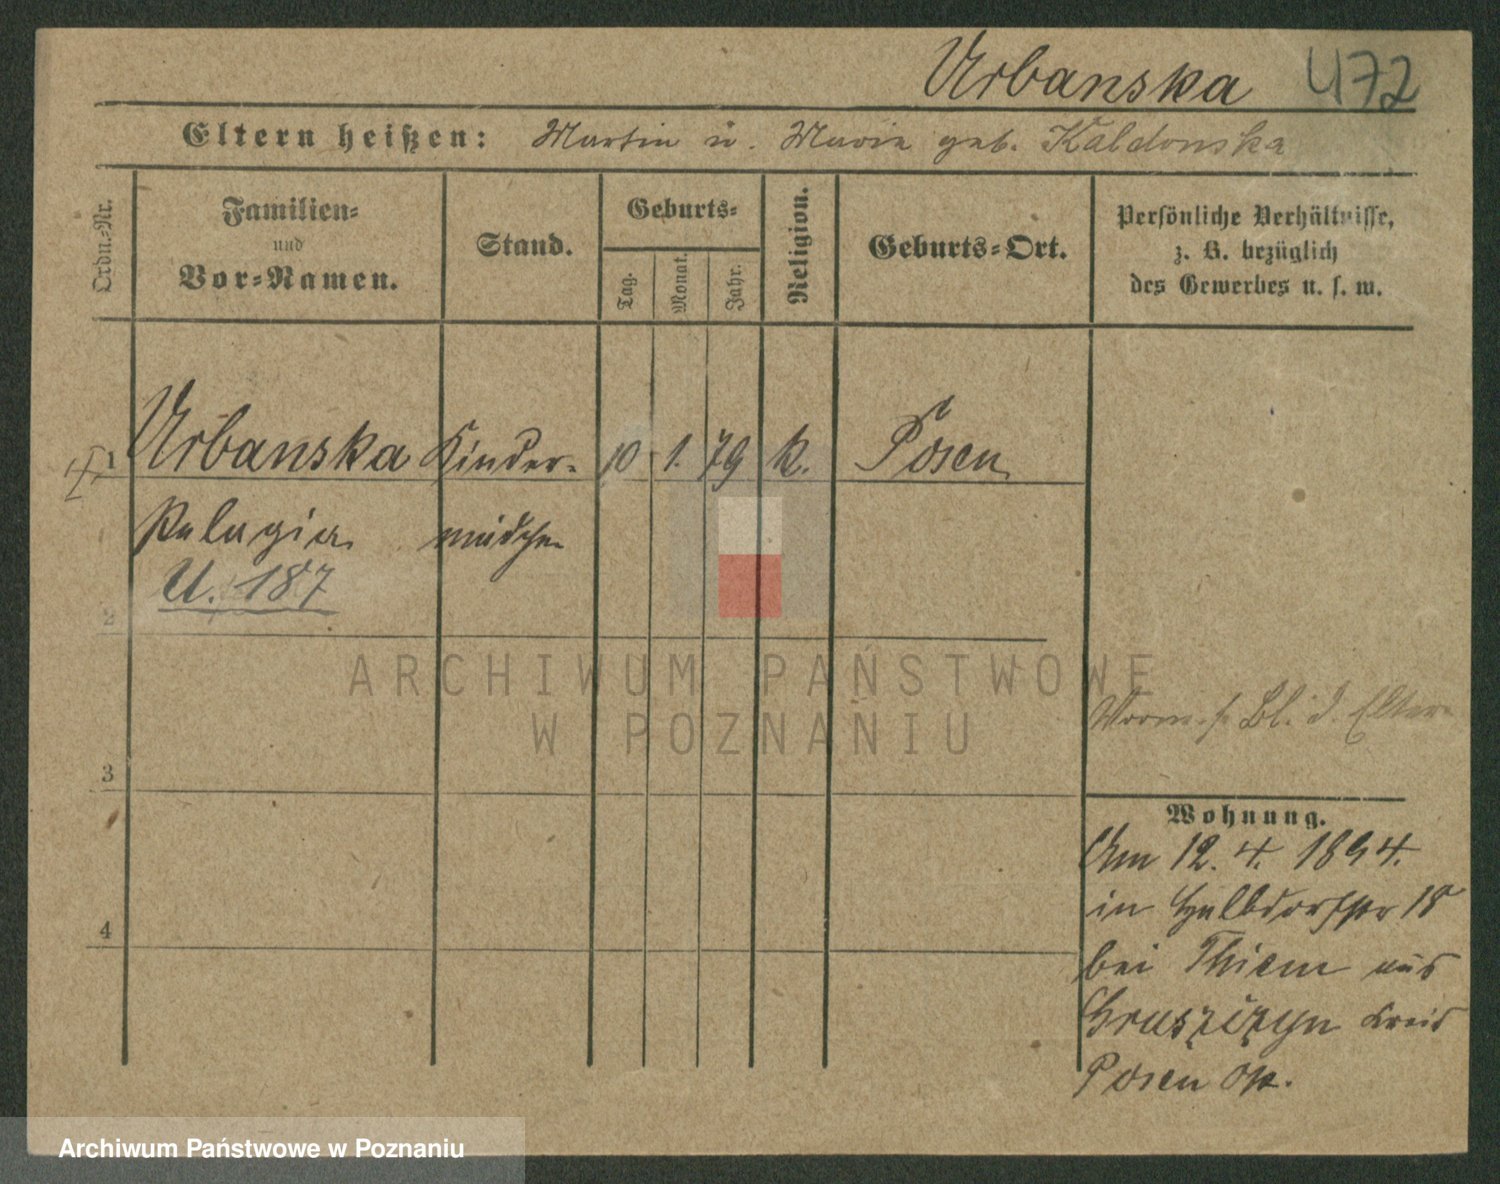 Urbanska 472
Eltern heißen: Martin u. Marie geb. Kaldonska
Ordn.-Nr.
Familien-
und
Vor-Namen.
Stand.
Geburts-
Tag.
Monat.
Jahr.
Religion.
Geburts-Ort.
Persönliche Verhältnisse,
z. B. bezüglich
des Gewerbes u. s. w.
1 Urbanska Kinder- 10 1. 79 k. Posen
Pelagia mädchen
U. 187
2
ARCHIWUM PAŃSTWOWE
W POZNANIU
Bl. d. Eltern
3
Wohnung.
Am 12. 4. 1894.
in 18
4
bei Thiem aus
Kreis
Posen
Archiwum Państwowe w Poznaniu